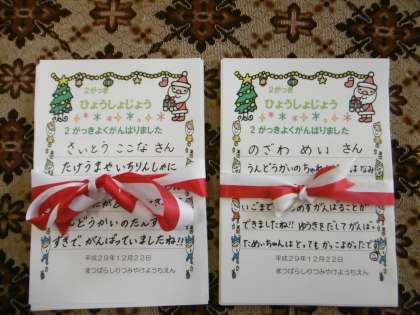 2がっき
ひょうしょじょう
2がっきよくがんばりました
さいとう ここな さん
たけうまや いちりんしゃに
んどうかいのたんす
すきで、がんばっていましたね!!
平成29年12月22日
まつばらしりつみやけようちえん
2がっき
ひょうしょじょう
2がっきよくがんばりました
のざわ めい さん
うんどうかいの
いごまで
がんばることが
できましたね!! ゆうきをだしてがんばっ
ためいちゃんはとってもかっこよかったです
平成29年12月22日
まつばらしりつみやけようちえん